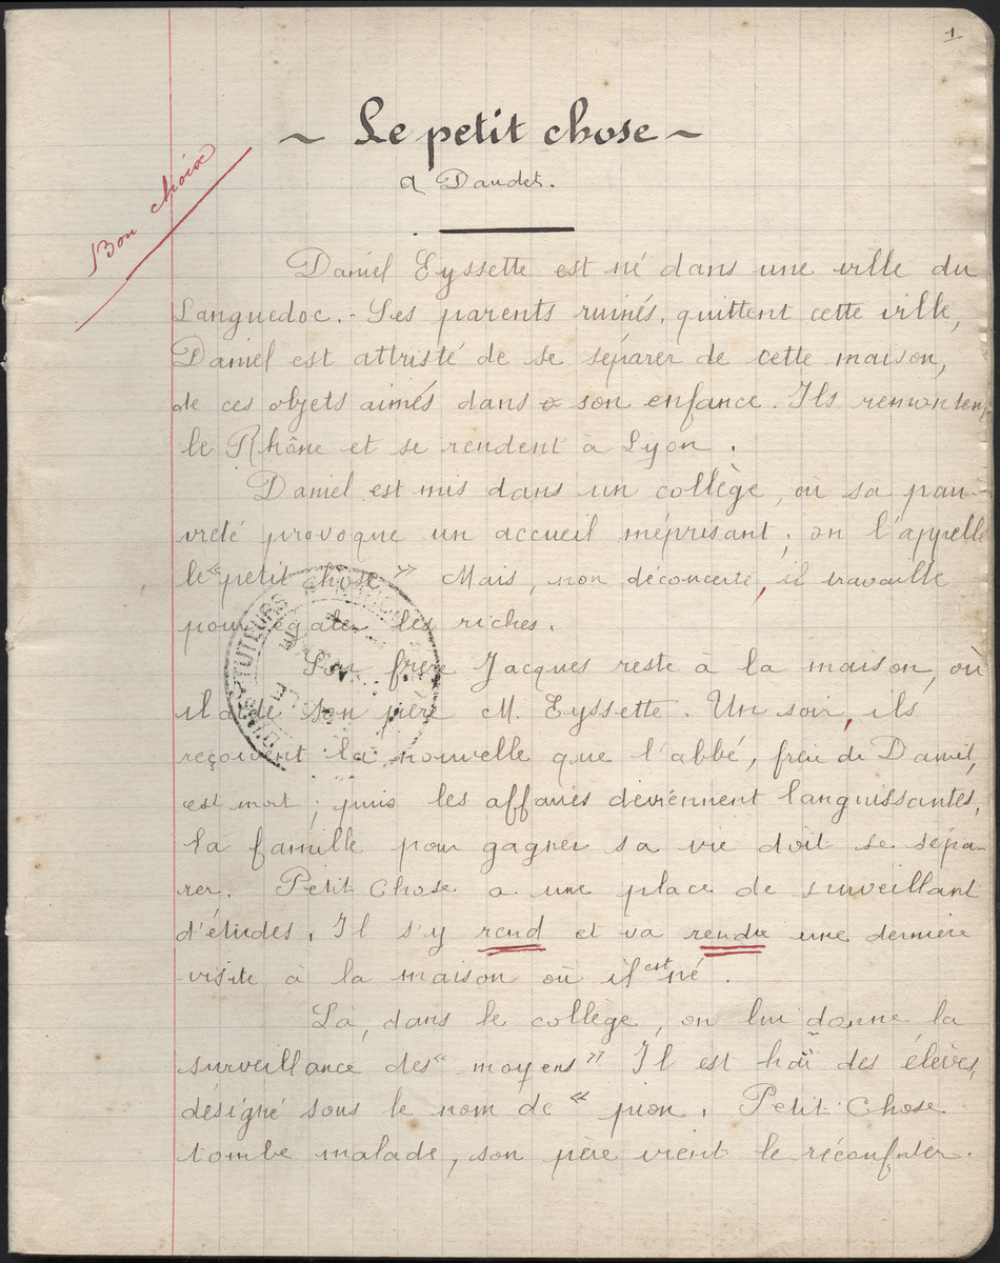 1
~ Le petit chose ~
A Daudet.
Bon choix
Daniel Eyssette est né dans une ville du
Languedoc. - Ses parents ruinés, quittent cette ville,
Daniel est attristé de se séparer de cette maison,
de ces objets aimés dans son enfance. Ils remontent
le Rhône et se rendent à Lyon.
Daniel est mis dans un collège, où sa pau-
vreté provoque un accueil méprisant ; on l'appelle
le "petit chose" Mais, non déconcerté, il travaille
pour égaler les riches.
Son frère Jacques reste à la maison, où
il aide son père M. Eyssette. Un soir, ils
reçoivent la nouvelle que l'abbé, frère de Daniel,
est mort ; puis les affaires deviennent languissantes,
la famille pour gagner sa vie doit se sépa-
rer. Petit Chose a une place de surveillant
d'études. Il s'y rend et va rendre une dernière
visite à la maison où il est né.
Là, dans le collège, on lui donne la
surveillance des "moyens" Il est haï des élèves,
désigné sous le nom de "pion. Petit Chose
tombe malade, son père vient le réconforter.